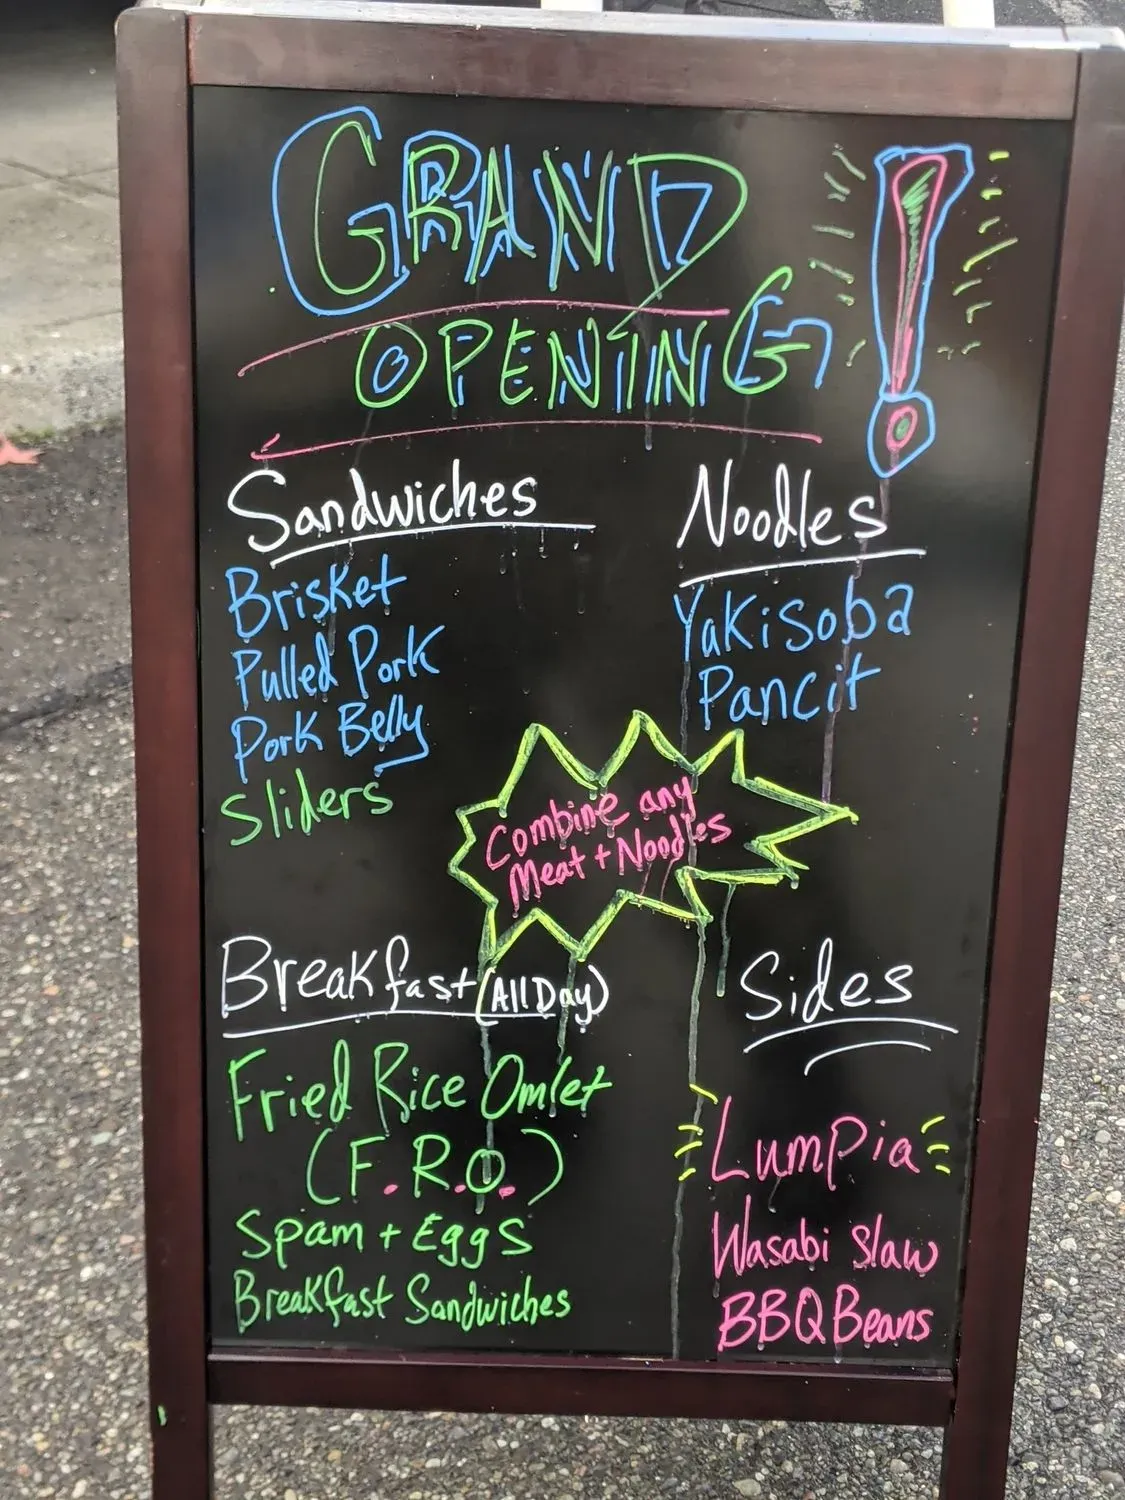 GRAND
OPENING!
Sandwiches
Brisket
Pulled Pork
Pork Belly
Sliders
Noodles
Yakisoba
Pancit
Combine any
Meat + Noodles
Breakfast (All Day)
Fried Rice Omlet
(F.R.O.)
Spam + Eggs
Breakfast Sandwiches
Sides
Lumpia
Wasabi Slaw
BBQ Beans